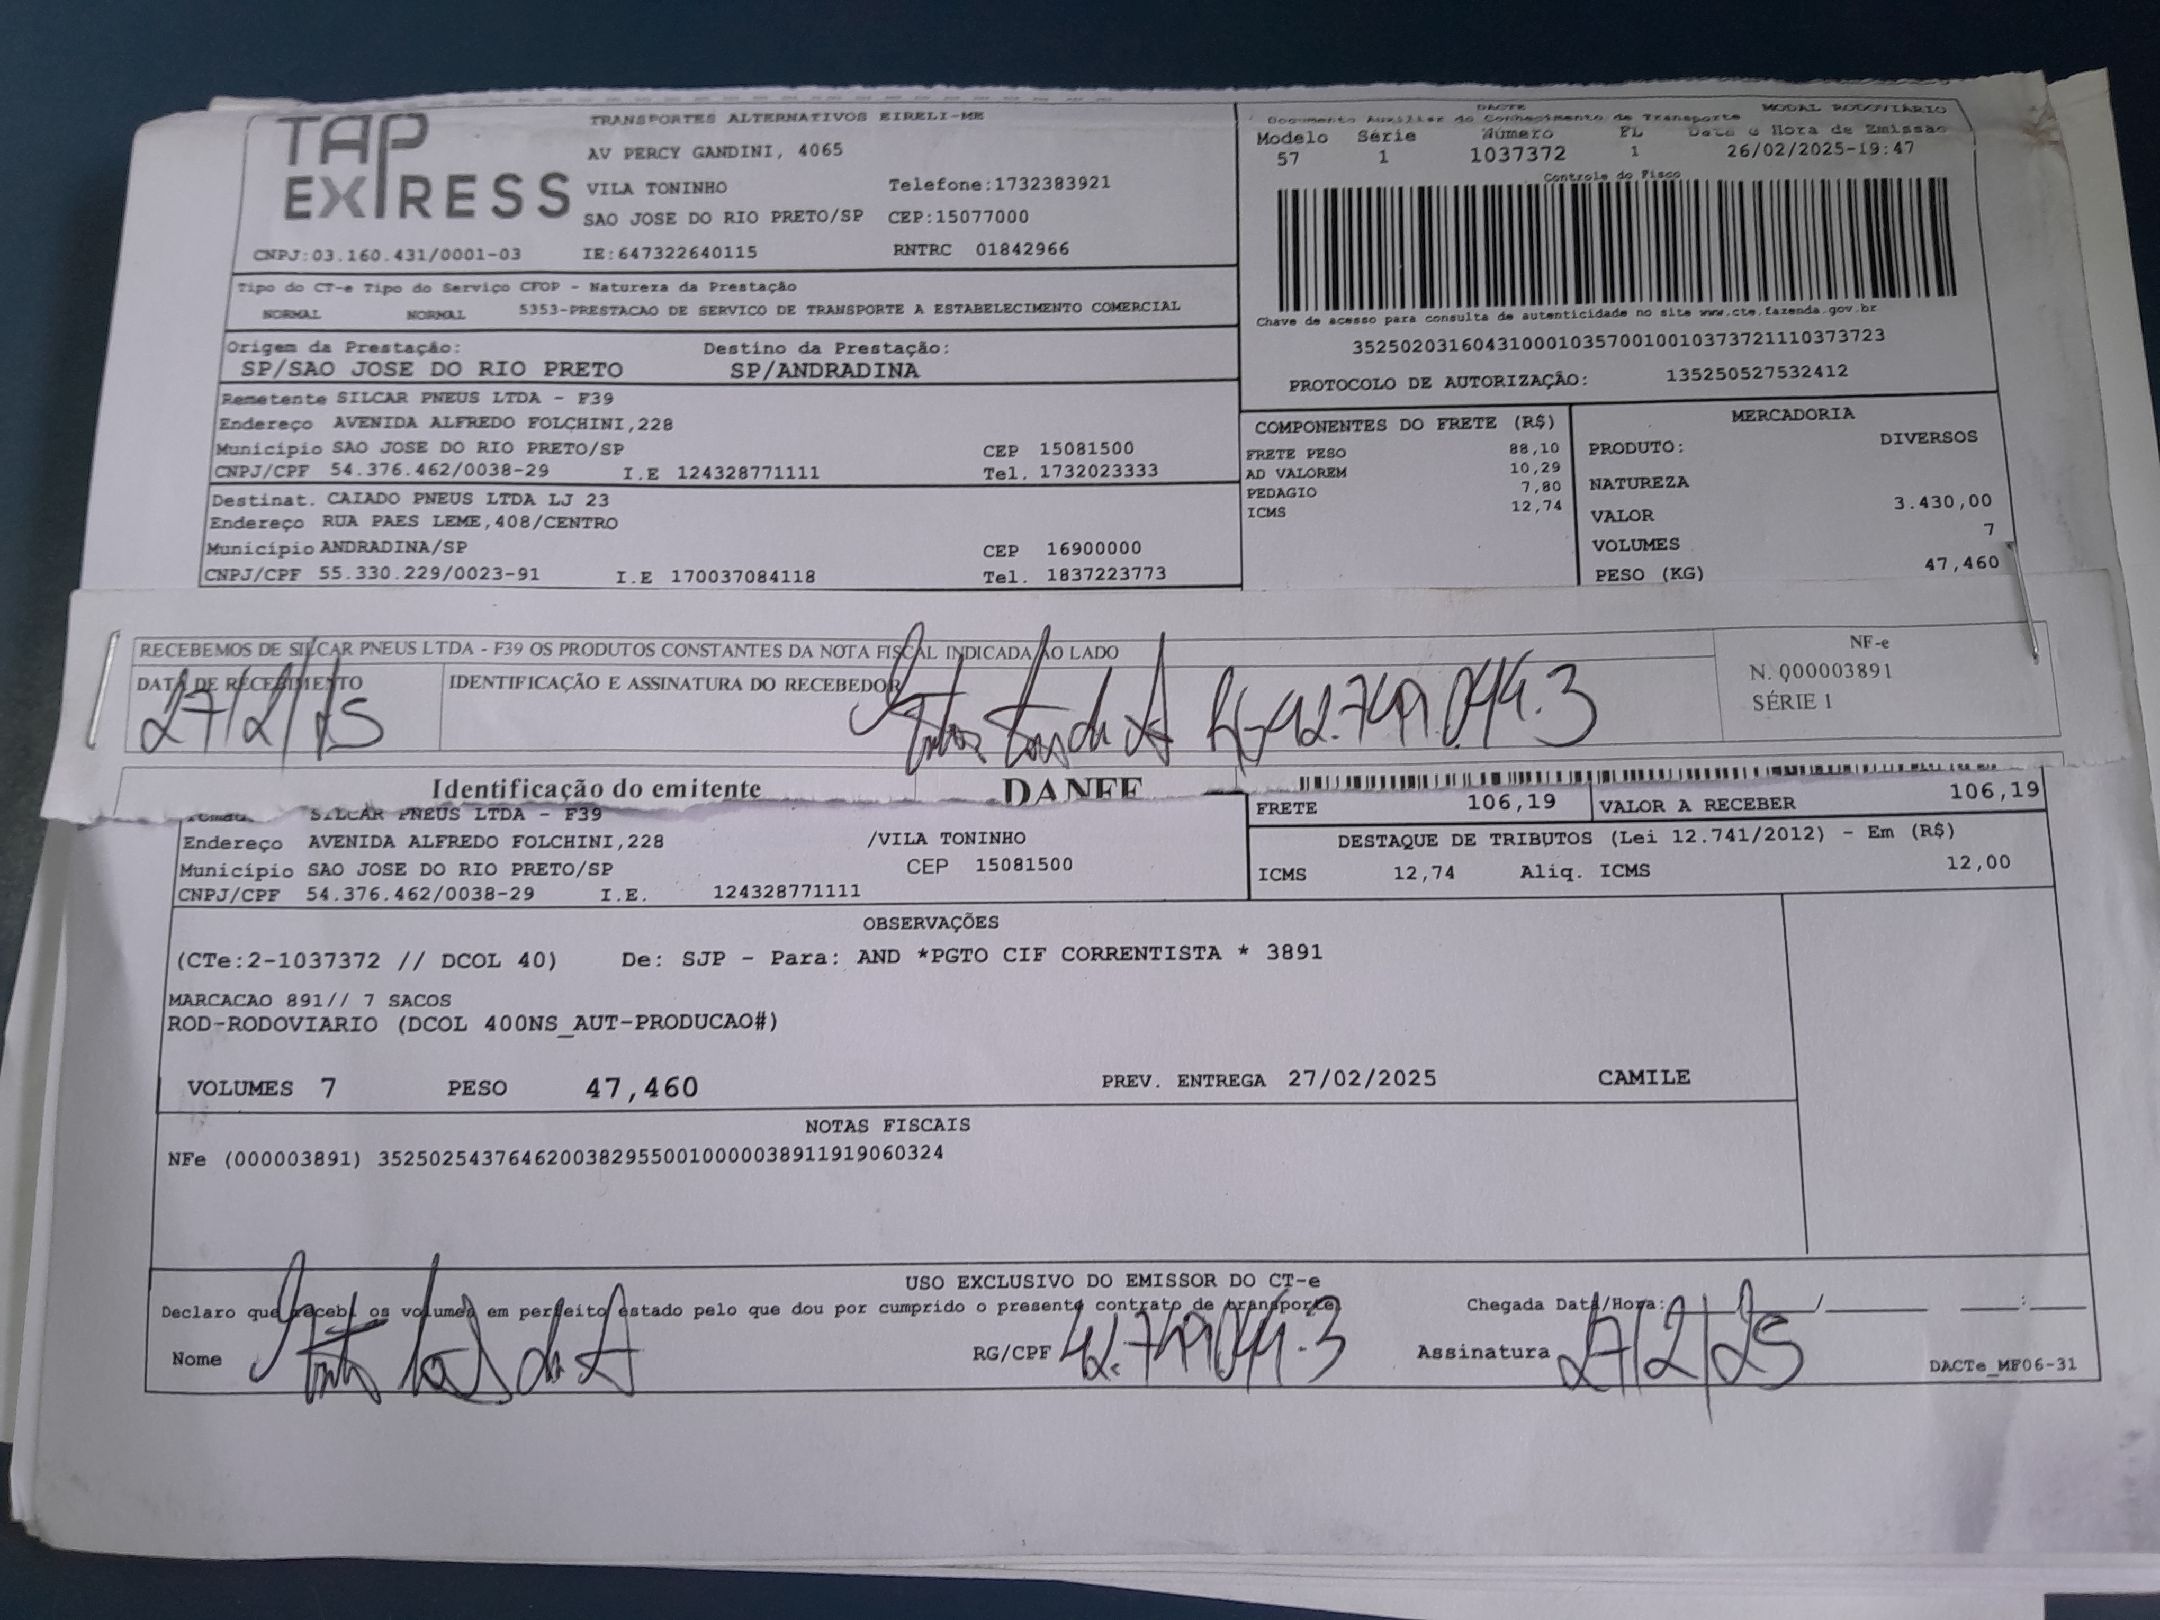 TAP EXPRESS
TRANSPORTES ALTERNATIVOS EIRELI-ME
AV PERCY GANDINI, 4065
VILA TONINHO Telefone:1732383921
SAO JOSE DO RIO PRETO/SP CEP:15077000
CNPJ:03.160.431/0001-03 IE:647322640115 RNTRC 01842966
DACTE MODAL RODOVIÁRIO
Documento Auxiliar do Conhecimento de Transporte
Modelo Série Número FL Data e Hora de Emissão
57 1 1037372 1 26/02/2025-19:47
Controle do Fisco
Chave de acesso para consulta de autenticidade no site www.cte.fazenda.gov.br
35250203160431000103570010010373721110373723
PROTOCOLO DE AUTORIZAÇÃO: 135250527532412
Tipo do CT-e Tipo do Serviço CFOP - Natureza da Prestação
NORMAL NORMAL 5353-PRESTACAO DE SERVICO DE TRANSPORTE A ESTABELECIMENTO COMERCIAL
Origem da Prestação: Destino da Prestação:
SP/SAO JOSE DO RIO PRETO SP/ANDRADINA
Remetente SILCAR PNEUS LTDA - F39
Endereço AVENIDA ALFREDO FOLCHINI,228
Município SAO JOSE DO RIO PRETO/SP CEP 15081500
CNPJ/CPF 54.376.462/0038-29 I.E 124328771111 Tel. 1732023333
Destinat. CAIADO PNEUS LTDA LJ 23
Endereço RUA PAES LEME,408/CENTRO
Município ANDRADINA/SP CEP 16900000
CNPJ/CPF 55.330.229/0023-91 I.E 170037084118 Tel. 1837223773
COMPONENTES DO FRETE (R$)
FRETE PESO 88,10
AD VALOREM 10,29
PEDAGIO 7,80
ICMS 12,74
MERCADORIA
PRODUTO: DIVERSOS
NATUREZA
VALOR 3.430,00
VOLUMES 7
PESO (KG) 47,460
RECEBEMOS DE SILCAR PNEUS LTDA - F39 OS PRODUTOS CONSTANTES DA NOTA FISCAL INDICADA AO LADO
DATA DE RECEBIMENTO IDENTIFICAÇÃO E ASSINATURA DO RECEBEDOR
27/2/25 42.749.044.3
NF-e
N. 000003891
SÉRIE 1
Identificação do emitente DANFE
SILCAR PNEUS LTDA - F39
Endereço AVENIDA ALFREDO FOLCHINI,228 /VILA TONINHO
Município SAO JOSE DO RIO PRETO/SP CEP 15081500
CNPJ/CPF 54.376.462/0038-29 I.E. 124328771111
FRETE 106,19 VALOR A RECEBER 106,19
DESTAQUE DE TRIBUTOS (Lei 12.741/2012) - Em (R$)
ICMS 12,74 Aliq. ICMS 12,00
OBSERVAÇÕES
(CTe:2-1037372 // DCOL 40) De: SJP - Para: AND *PGTO CIF CORRENTISTA * 3891
MARCACAO 891// 7 SACOS
ROD-RODOVIARIO (DCOL 400NS_AUT-PRODUCAO#)
VOLUMES 7 PESO 47,460 PREV. ENTREGA 27/02/2025 CAMILE
NOTAS FISCAIS
NFe (000003891) 35250254376462003829550010000038911919060324
USO EXCLUSIVO DO EMISSOR DO CT-e
Declaro que recebi os volumes em perfeito estado pelo que dou por cumprido o presente contrato de transporte. Chegada Data/Hora: ____/____ __:__
Nome RG/CPF 42.749.044.3 Assinatura 27/2/25
DACTe_MF06-31